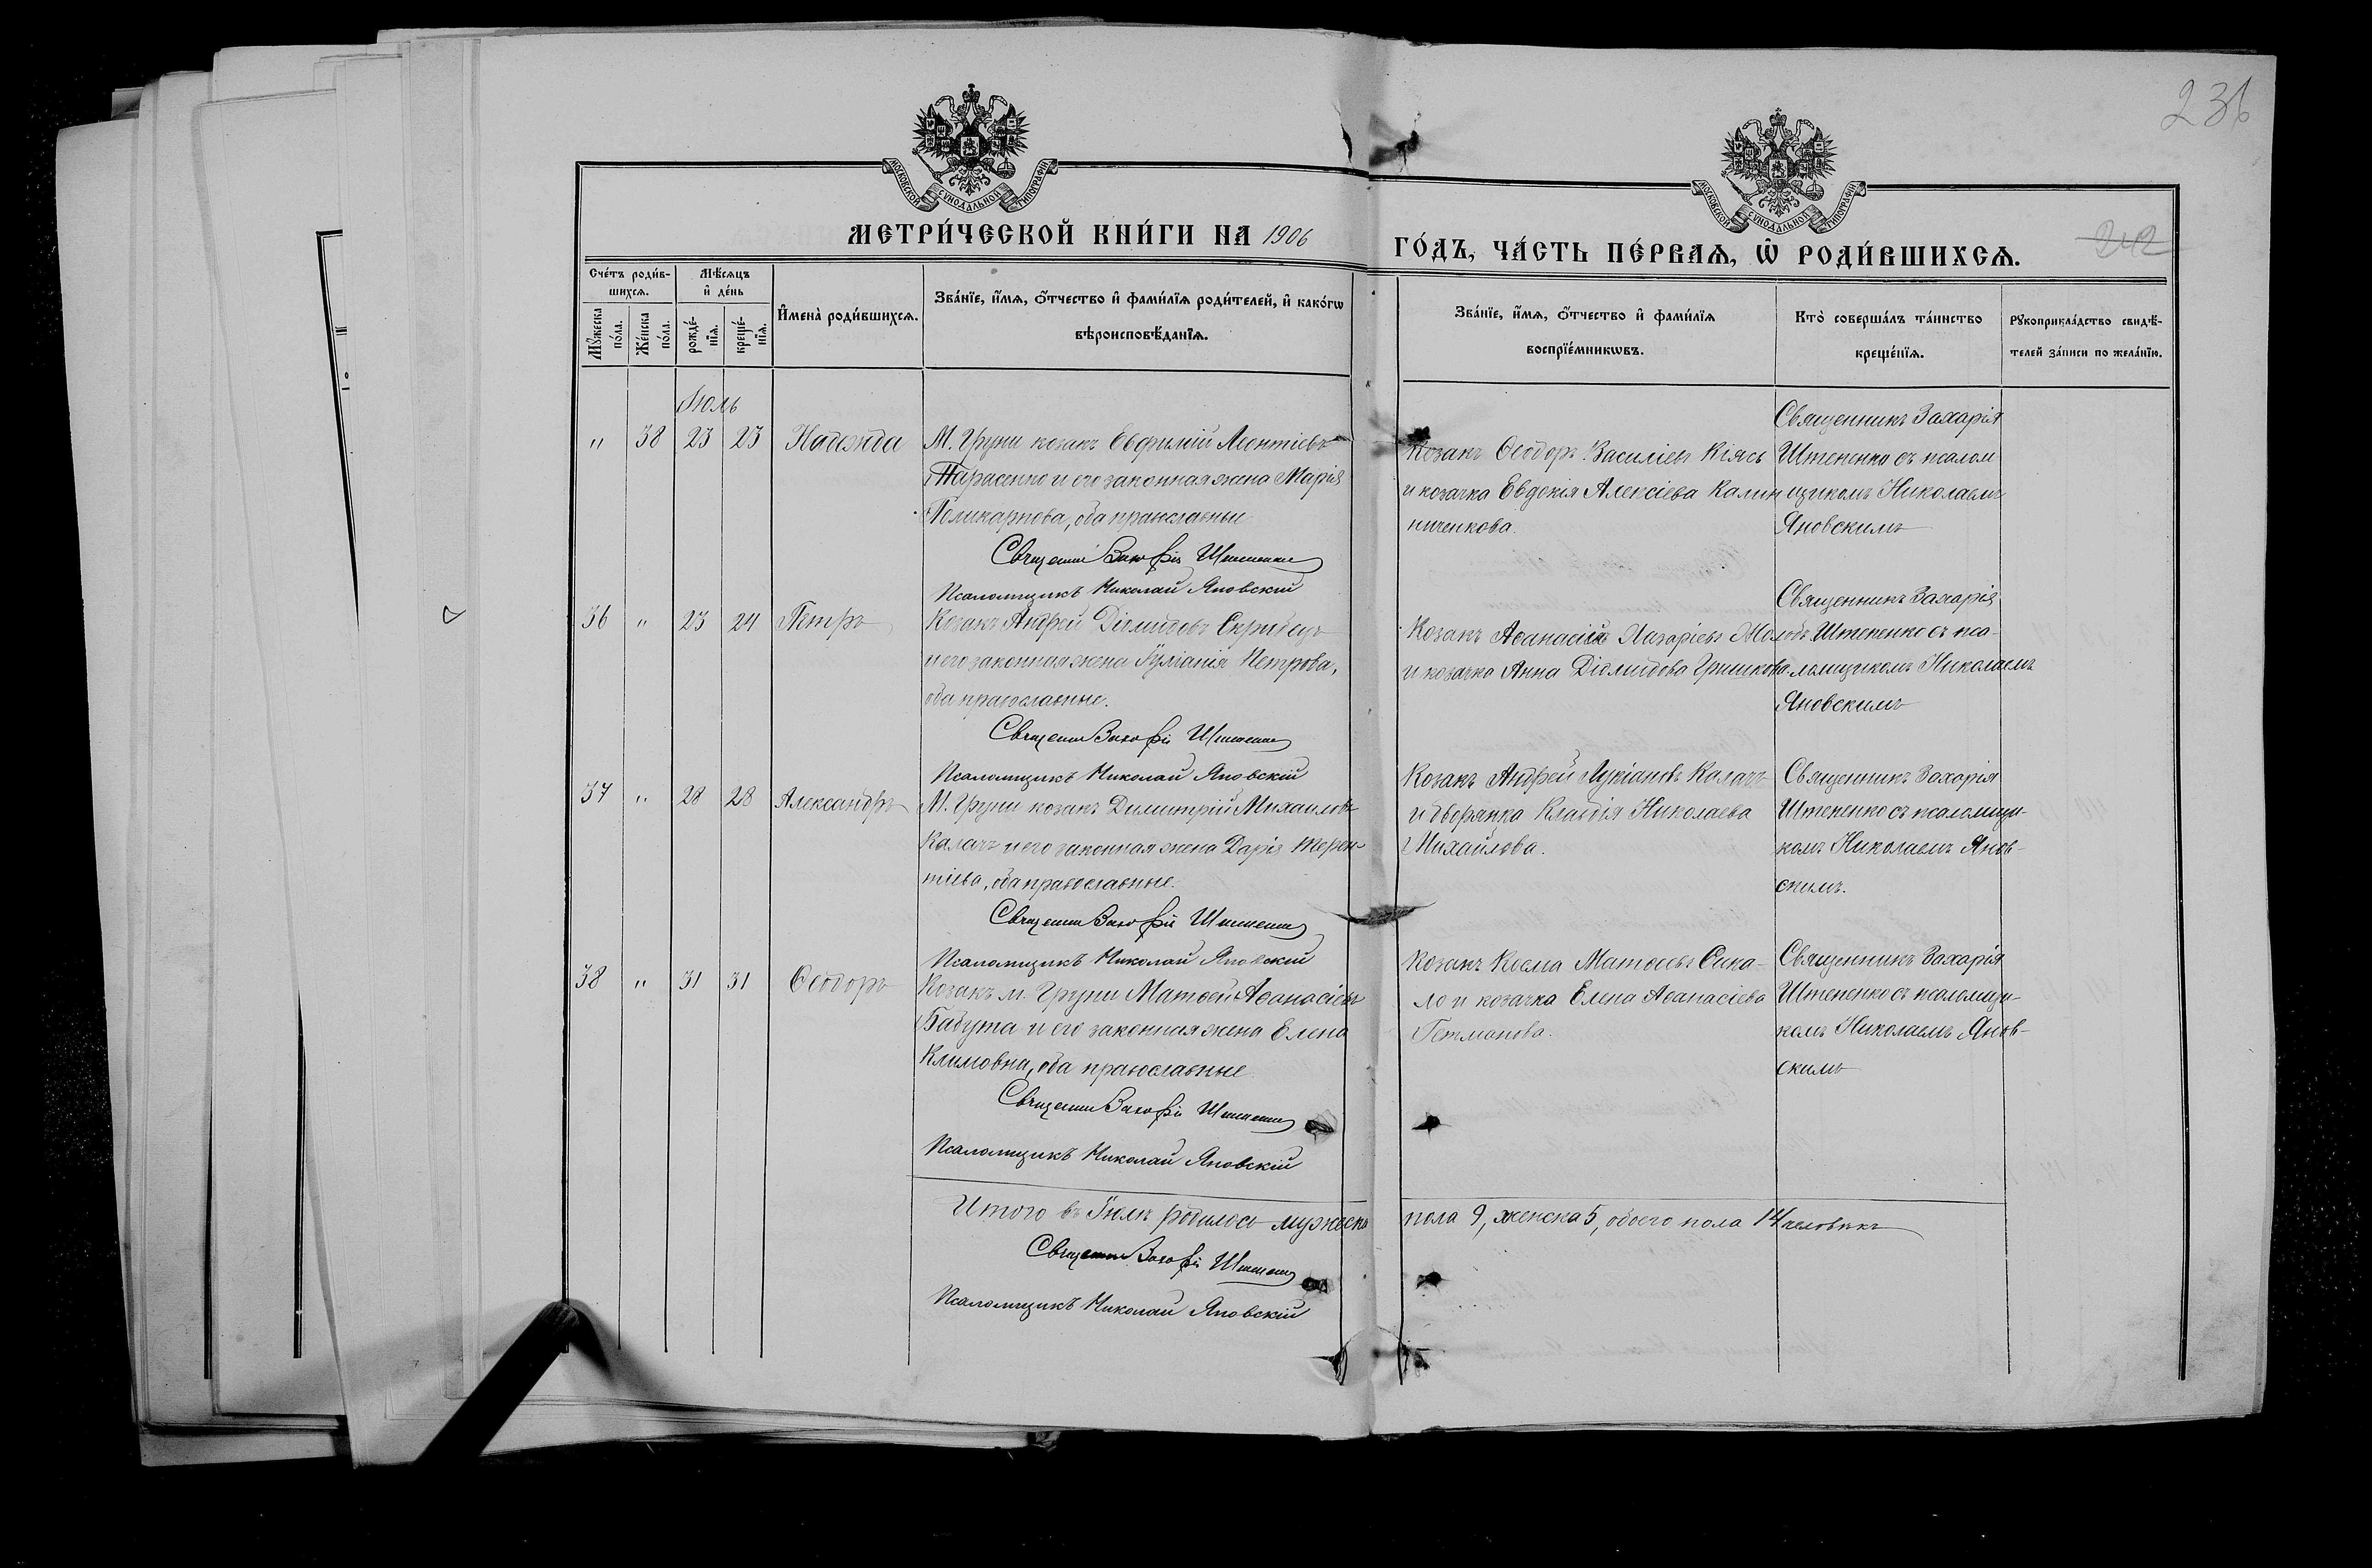 236
МОСКОВСКОЙ СѴНОДАЛЬНОЙ ТИПОГРАФІИ
МОСКОВСКОЙ СѴНОДАЛЬНОЙ ТИПОГРАФІИ
МЕТРИ́ЧЕСКОЙ КНИ́ГИ НА 1906 ГО́ДЪ, ЧА́СТЬ ПЕ́РВАѦ, Ѡ РОДИ́ВШИХСѦ.
242
Сче́тъ роди́в-
шихсѧ.
Мѣ́сѧцъ
и҆ де́нь
Мꙋ́жеска
по́ла.
Же́нска
по́ла.
рожде́-
нїѧ.
креще́-
нїѧ.
И҆мена̀ роди́вшихсѧ.
Зва́нїе, и҆́мѧ, ѻ҆́тчество и҆ фами́лїѧ роди́телей, и҆ како́гѡ
вѣроисповѣ́данїѧ.
Зва́нїе, и҆́мѧ, ѻ҆́тчество и҆ фами́лїѧ
воспрїе́мникѡвъ.
Кто̀ соверша́лъ та́инство
креще́нїѧ.
Рꙋкоприкла́дство свидѣ́-
телей за́писи по жела́нїю.
Іюль
" 38 23 23 Надежда
М. Груни козакъ Евфимій Леонтіевъ
Тарасенко и его законная жена Марія
Поликарпова, оба православные
Священникъ Захарія Штепенко
Псаломщикъ Николай Яновскій
Козакъ Ѳеодоръ Василіевъ Кіясь
и козачка Евдокія Алексіева Калин
ниченкова.
Священникъ Захарія
Штепенко съ псалом
щикомъ Николаемъ
Яновскимъ
36 " 23 24 Петръ
Козакъ Андрей Діомидовъ Скрибецъ
и его законная жена Іуліанія Петрова,
оба православные.
Священникъ Захарія Штепенко
Псаломщикъ Николай Яновскій
Козакъ Аѳанасій Лазаріевъ
и козачка Анна Діомидова Гришкова
Священникъ Захарія
Штепенко съ пса-
ломщикомъ Николаемъ
Яновскимъ
37 " 28 28 Александръ
М. Груни козакъ Димитрій Михаиловъ
Калачъ и его законная жена Дарія Терен
тіева, оба православные.
Священникъ Захарія Штепенко
Псаломщикъ Николай Яновскій
Козакъ Андрей Лукіановъ Калачъ
и дворянка Клавдія Николаева
Михайлова.
Священникъ Захарія
Штепенко съ псаломщи-
комъ Николаемъ Янов-
скимъ.
38 " 31 31 Ѳеодоръ
Козакъ м. Груни Матѳей Аѳанасіевъ
Бабута и его законная жена Елена
Климовна, оба православные
Священникъ Захарія Штепенко
Псаломщикъ Николай Яновскій
Козакъ Косма Матѳеевъ Сика-
ло и козачка Елена Аѳанасіева
Гетманова.
Священникъ Захарія
Штепенко съ псаломщи-
комъ Николаемъ Янов-
скимъ
Итого въ Іюлѣ родилось мужеска пола 9, женска 5, обоего пола 14 человѣкъ
Священникъ Захарія Штепенко
Псаломщикъ Николай Яновскій